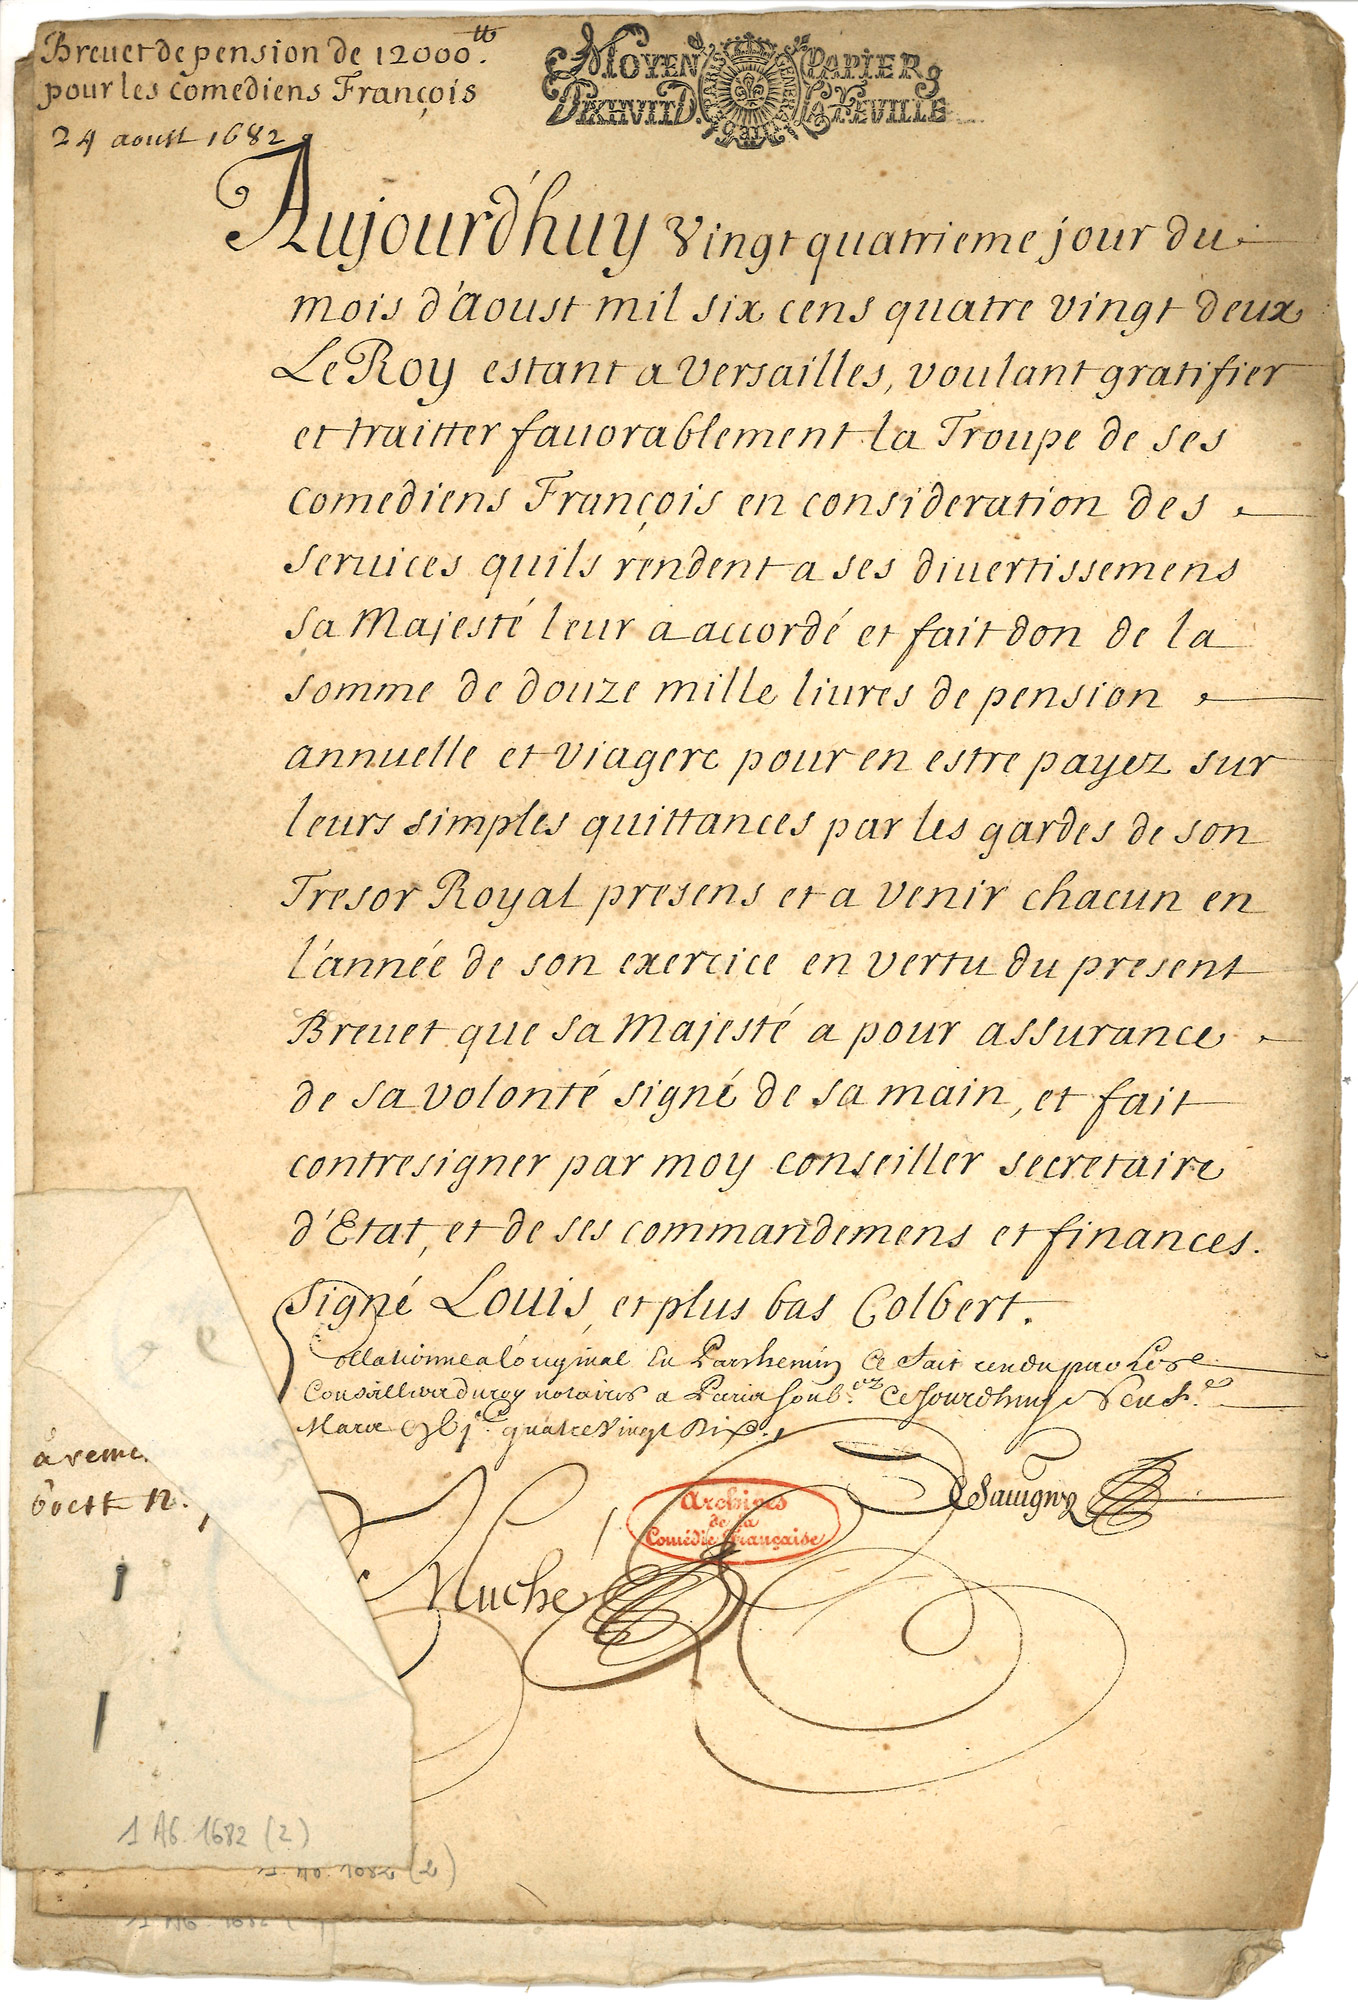 Breuet de pension de 12000ᵗᵗ.
pour les comediens François
24 aoust 1682
MOYEN PAPIER
LA FEUILLE
Aujourd'huy vingt quatrieme jour du
mois d'aoust mil six cens quatre vingt deux
Le Roy estant a Versailles, voulant gratifier
et traitter fauorablement la Troupe de ses
comediens François en consideration des
seruices quils rendent a ses diuertissemens
sa Majesté leur a accordé et fait don de la
somme de douze mille liures de pension
annuelle et viagere pour en estre payez sur
leurs simples quittances par les gardes de son
Tresor Royal presens et a venir chacun en
l'année de son exercice en vertu du present
Breuet que sa Majesté a pour assurance
de sa volonté signé de sa main, et fait
contresigner par moy conseiller secretaire
d'Etat, et de ses commandemens et finances.
signé Louis, et plus bas Colbert.
Collationné a l'original En Parchemin Ce fait rendu par Les
Conseillers du roy notaires a Paris Ce Jourdhuy
Mars quatre Vingt Dix.
Sauigny
Archives
de la
Comédie Française
Huché
1 AG. 1682 (2)